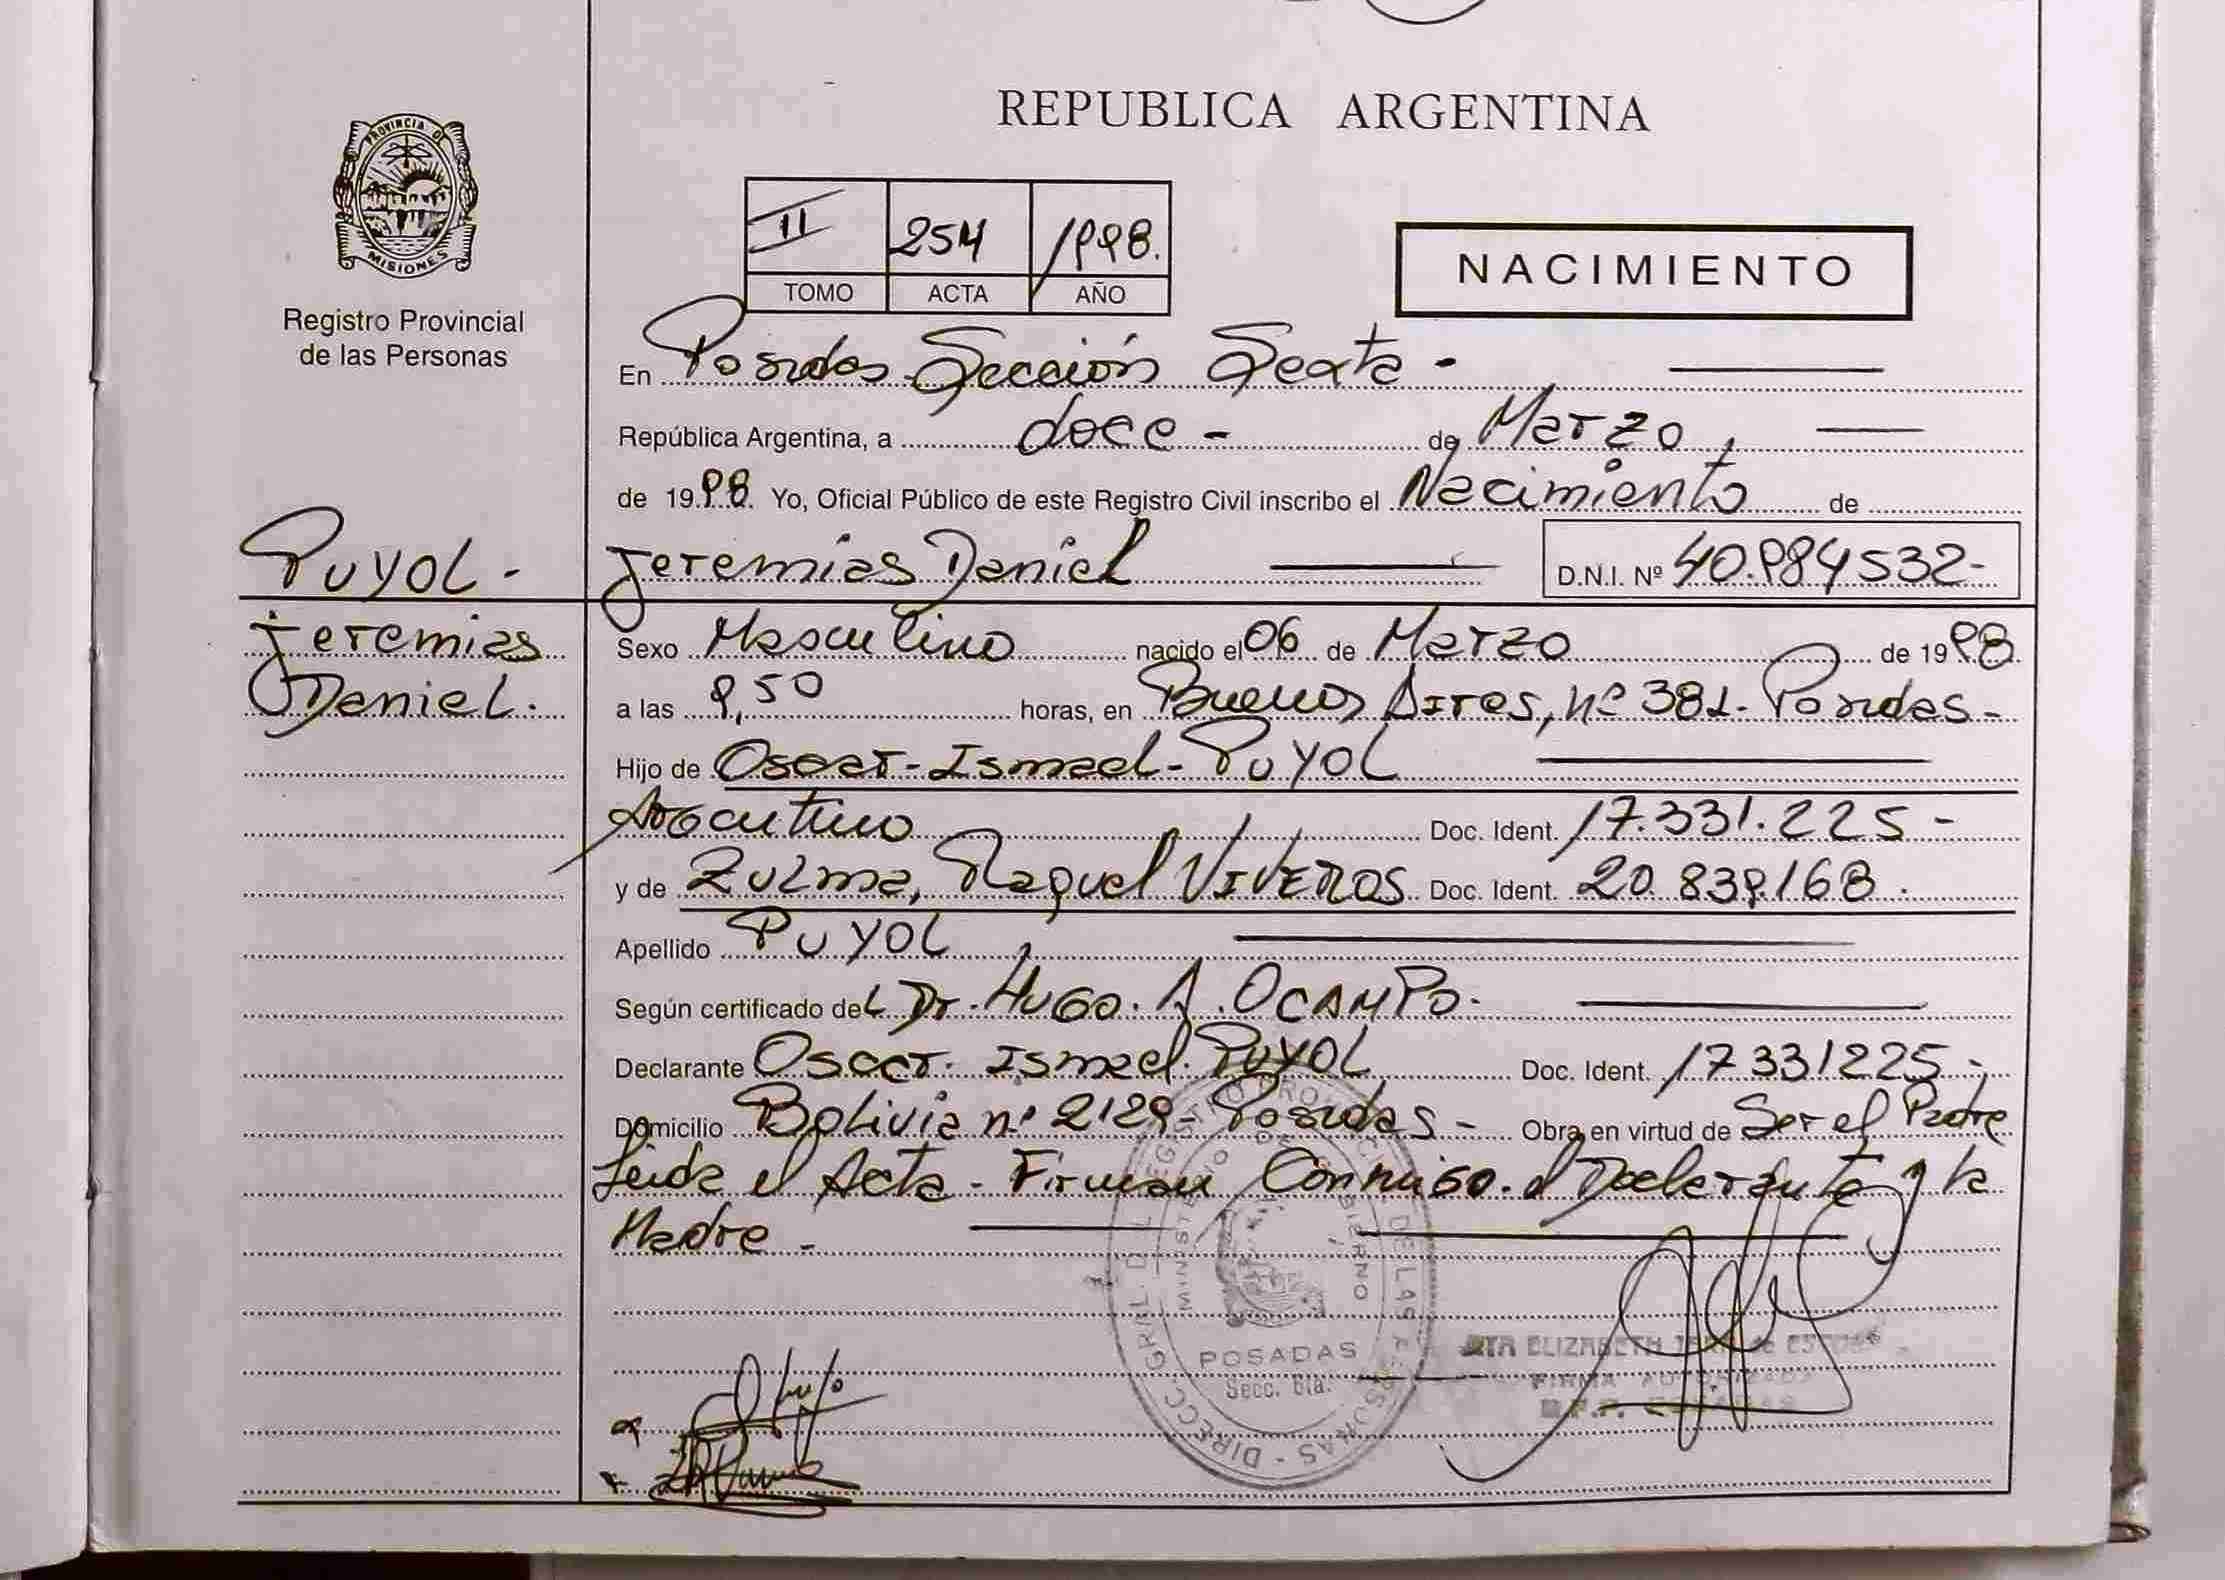 REPUBLICA ARGENTINA
PROVINCIA DE
MISIONES
Registro Provincial
de las Personas
II 254 1998.
TOMO ACTA AÑO
NACIMIENTO
En Posadas Sección Sexta -
República Argentina, a doce - de Marzo,
de 1998. Yo, Oficial Público de este Registro Civil inscribo el Nacimiento de
PUYOL - Jeremias Daniel D.N.I. Nº 40.984532-
Jeremias
Daniel.
Sexo Masculino nacido el 06 de Marzo de 1998.
a las 9,50 horas, en Buenos Aires, nº 381- Posadas -
Hijo de Oscar - Ismael - PUYOL
Argentino Doc. Ident. 17.331.225 -
y de Zulma, Raquel VIVEROS Doc. Ident. 20.839.168.
Apellido PUYOL
Según certificado del Dr. Hugo. A. OCAMPO-
Declarante Oscar. Ismael. PUYOL Doc. Ident. 17331225-
Domicilio Bolivia nº 2129- Posadas - Obra en virtud de Ser el Padre
Leida el Acta - Firman Conmigo. el Declarante y la
Madre -
DIRECC. GRAL. DEL REGISTRO PROVINC. DE LAS PERSONAS
MINISTERIO DE GOBIERNO
POSADAS
Secc. 6ta.
ELIZABETH
FIRMA AUTORIZADA